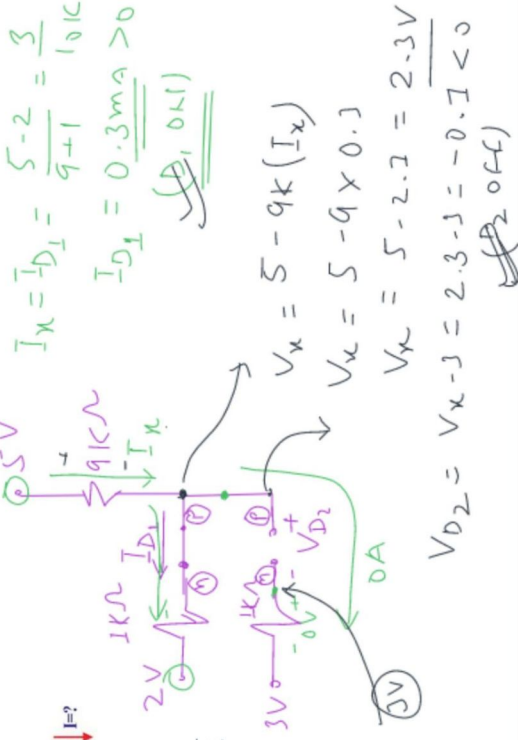 I=?
5V
+
9KΩ
-
Ix
1KΩ
ID1
2V
P
n
1KΩ
n
P
3V
- 0V +
- VD2 +
0A
3V
Ix = ID1 = 5-2 / 9+1 = 3 / 10K
ID1 = 0.3ma >0
(D1 on)
Vx = 5 - 9K (Ix)
Vx = 5 - 9 × 0.3
Vx = 5 - 2.7 = 2.3V
VD2 = Vx - 3 = 2.3 - 3 = -0.7 <0
(D2 off)